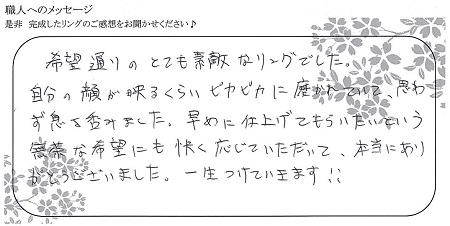 職人へのメッセージ
是非 完成したリングのご感想をお聞かせください♪
希望通りの とても素敵 なリングでした。
自分の顔が映るくらいピカピカに磨かれていて、思わ
ず息を呑みました。早めに仕上げてもらいたいという
な希望にも快く応じていただいて、本当にあり
がとうございました。一生つけていきます!!